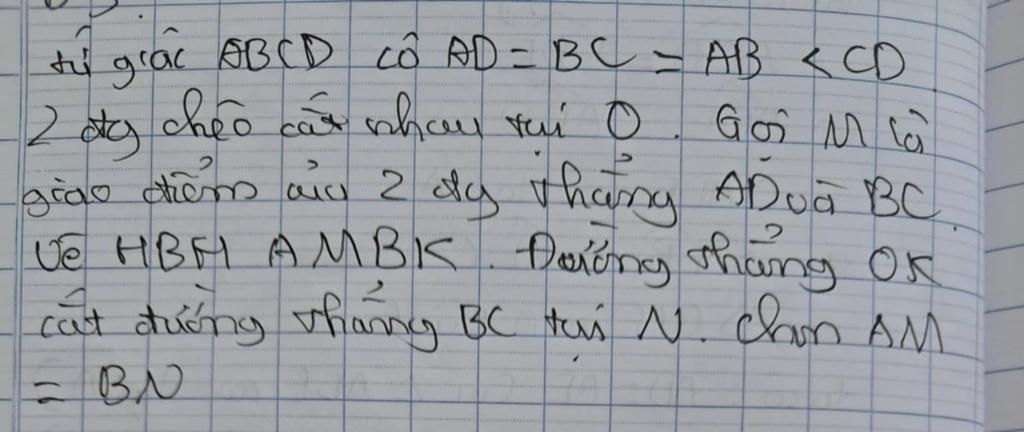 tứ giác ABCD có AD = BC = AB < CD
2 đtg chéo cắt nhau tại O. Gọi M là
giao điểm của 2 đtg thẳng AD và BC.
Vẽ HBH AMBK. Đường thẳng OK
cắt đường thẳng BC tại N. AM
= BN